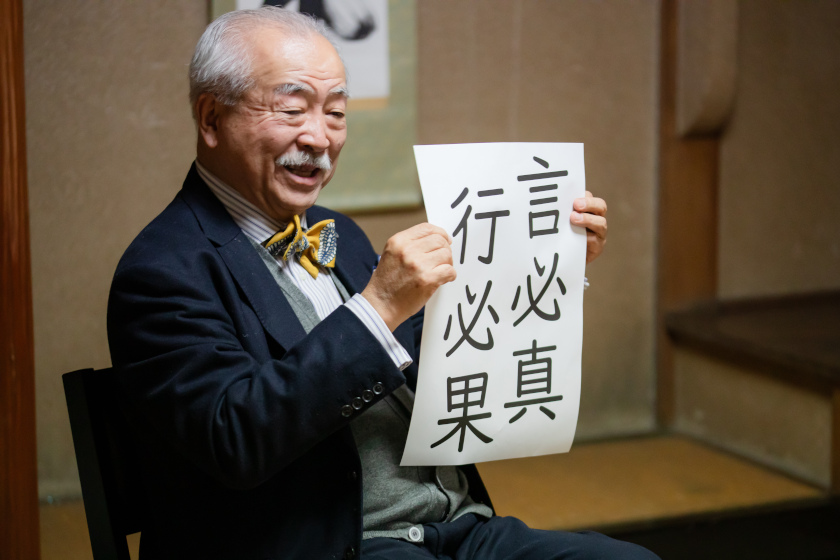 言必真
行必果